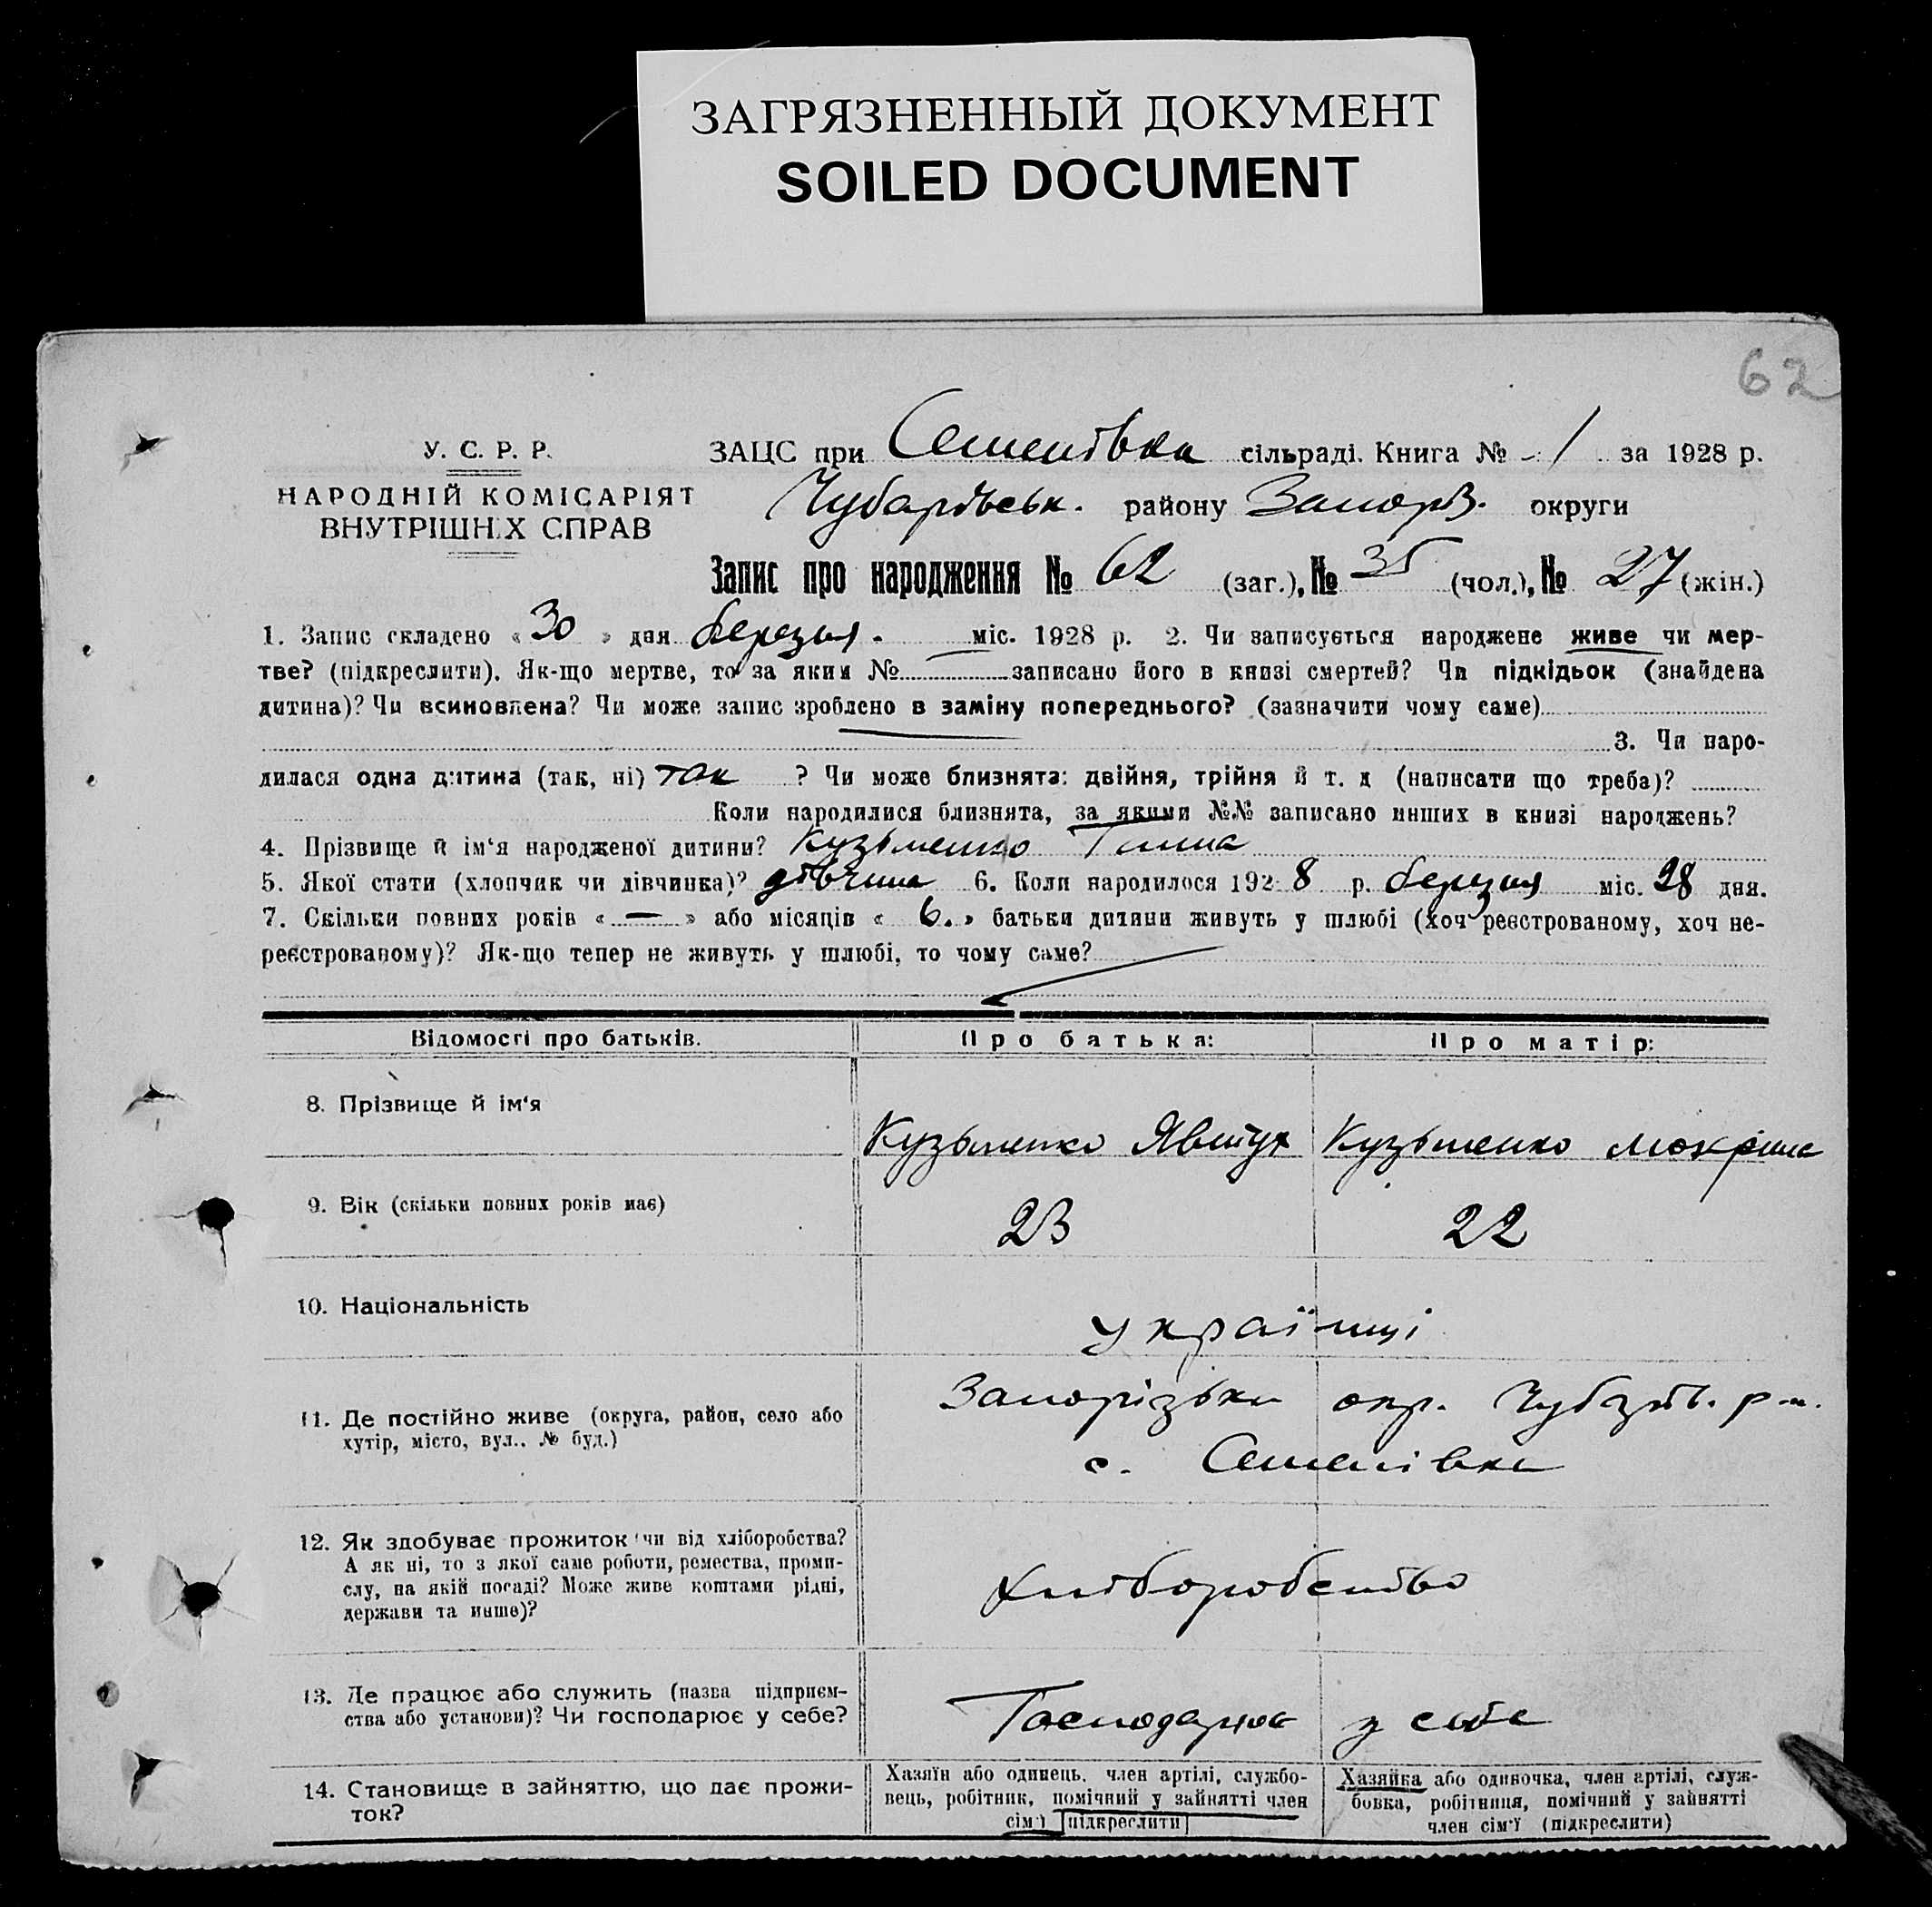 ЗАГРЯЗНЕННЫЙ ДОКУМЕНТ
SOILED DOCUMENT
62
У. С. Р. Р.
НАРОДНІЙ КОМІСАРІЯТ
ВНУТРІШНІХ СПРАВ
ЗАЦС при Семенівка сільраді. Книга № 1 за 1928 р.
Чубарівськ. району Запоріз. округи
Запис про народження № 62 (заг.), № 35 (чол.), № 27 (жін.)
1. Запис складено « 30 » дня березня міс. 1928 р. 2. Чи записується народжене живе чи мер-
тве? (підкреслити). Як-що мертве, то за яким № записано його в книзі смертей? Чи підкідьок (знайдена
дитина)? Чи всиновлена? Чи може запис зроблено в заміну попереднього? (зазначити чому саме)
3. Чи наро-
дилася одна дитина (так, ні) так ? Чи може близнята: двійня, трійня й т. д (написати що треба)?
Коли народилися близнята, за якими №№ записано инших в книзі народжень?
4. Прізвище й ім‘я народженої дитини? Кузьменко Ганна
5. Якої стати (хлопчик чи дівчинка)? дівчина 6. Коли народилося 1928 р. березня міс. 28 дня.
7. Скільки повних років « — » або місяців « 6. » батьки дитини живуть у шлюбі (хоч реєстрованому, хоч не-
реєстрованому)? Як-що тепер не живуть у шлюбі, то чому саме?
Відомості про батьків. Про батька: Про матір:
8. Прізвище й ім‘я
Кузьменко Явтух Кузьменко Мокрина
9. Вік (скільки повних років має)
23 22
10. Національність
українці
11. Де постійно живе (округа, район, село або
хутір, місто, вул.. № буд.)
Запорізька окр. Чубарів. р-н.
с. Семенівка
12. Як здобуває прожиток чи від хліборобства?
А як ні, то з якої саме роботи, ремества, проми-
слу, на якій посаді? Може живе коштами рідні,
держави та инше)?
Хліборобство
13. Де працює або служить (назва підприєм-
ства або установи)? Чи господарює у себе?
Господарює у себе
14. Становище в зайняттю, що дає прожи-
ток?
Хазяїн або одинець, член артілі, службо-
вець, робітник, помічний у зайнятті член
сім‘ї підкреслити
Хазяйка або одиночка, член артілі, служ-
бовка, робітниця, помічний у зайнятті
член сім‘ї (підкреслити)